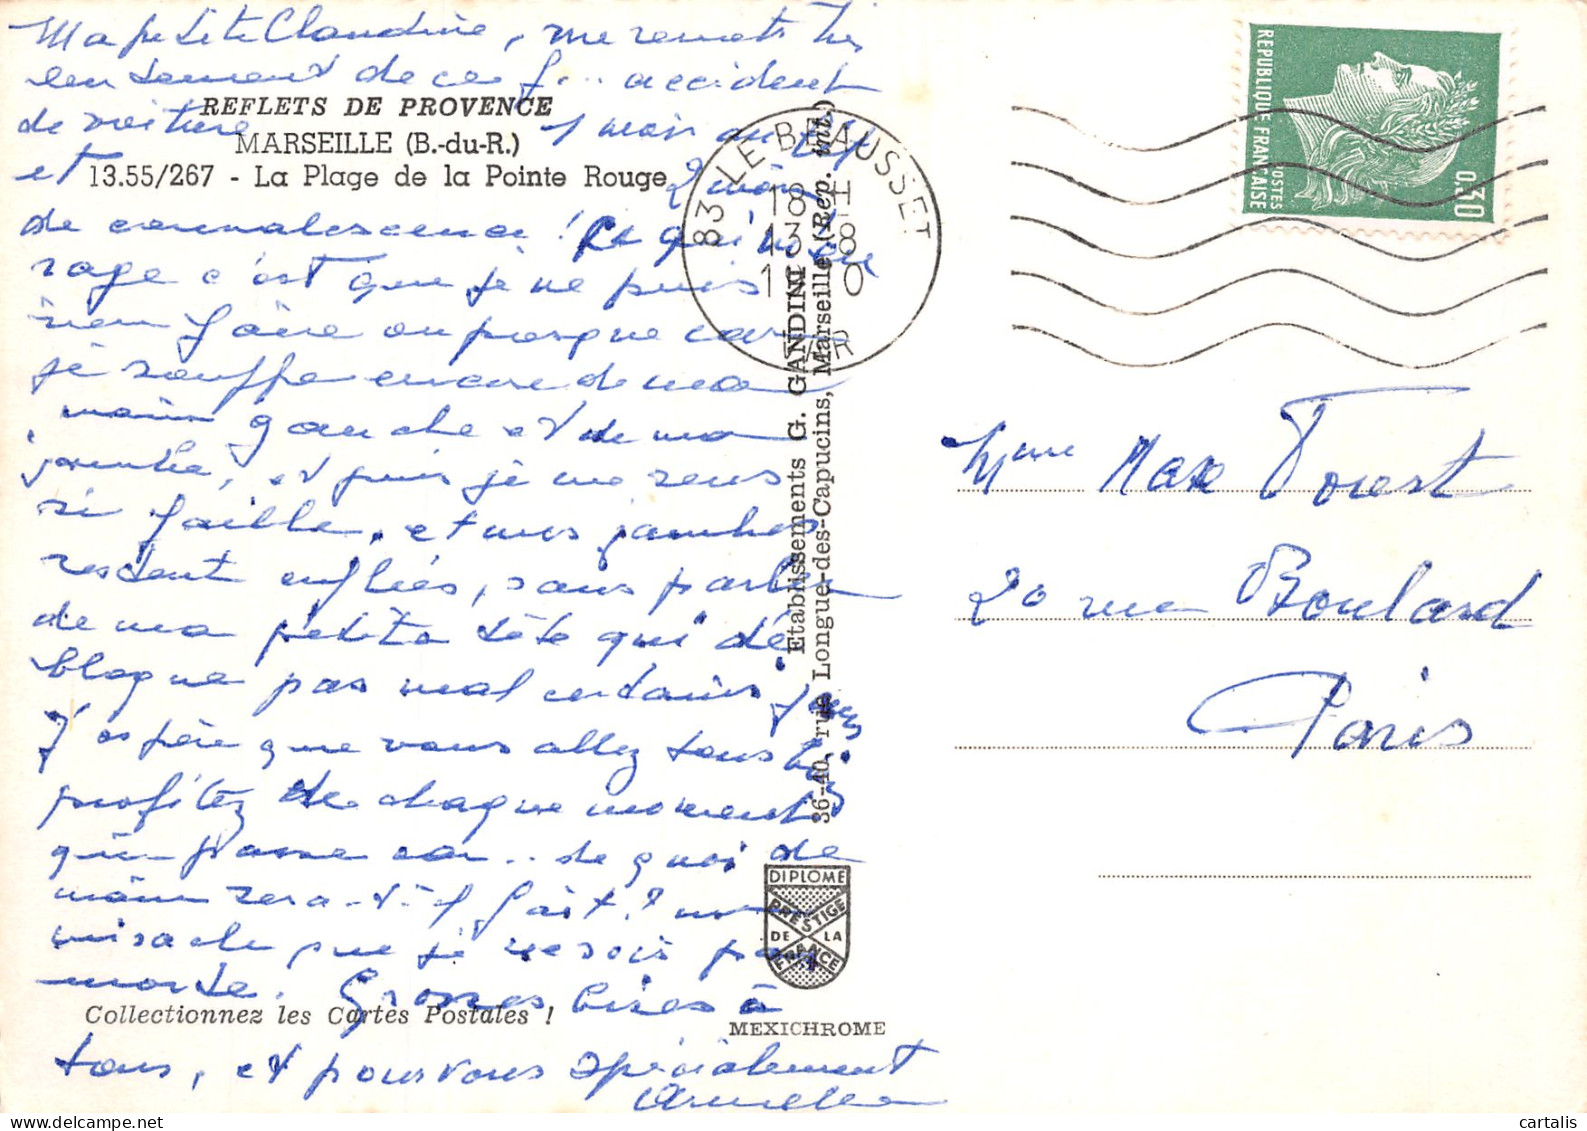 Ma petite Claudine, me remets très
lentement de ce f... accident
de voiture 1 mois au lit
et 2 mois
de convalescence ! Ce qui m'en
rage c'est que je ne puis
rien faire ou presque car
je souffre encore de ma
main gauche et de ma
jambe, et puis je me sens
si faible, et mes jambes
restent enflées, sans parler
de ma petite tête qui dé
bloque pas mal certains jours
J'espère que vous allez tous bien
profitez de chaque moment
qui passe car .. de quoi de
main sera-t-il fait ?
miracle que je ne sois pas
morte. Grosses bises à
tous, et pour vous spécialement
REFLETS DE PROVENCE
MARSEILLE (B.-du-R.)
13.55/267 - La Plage de la Pointe Rouge
Collectionnez les Cartes Postales !
Etablissements G. GANDINI
36-40, rue Longue-des-Capucins, Marseille (Rep. int.)
DIPLOME
PRESTIGE
DE LA
FRANCE
MEXICHROME
83 LE BEAUSSET
18 H
13-8
1 0
VAR
REPUBLIQUE FRANÇAISE
POSTES
0,30
Mme Max Forest
20 rue Boulard
Paris
cartalis